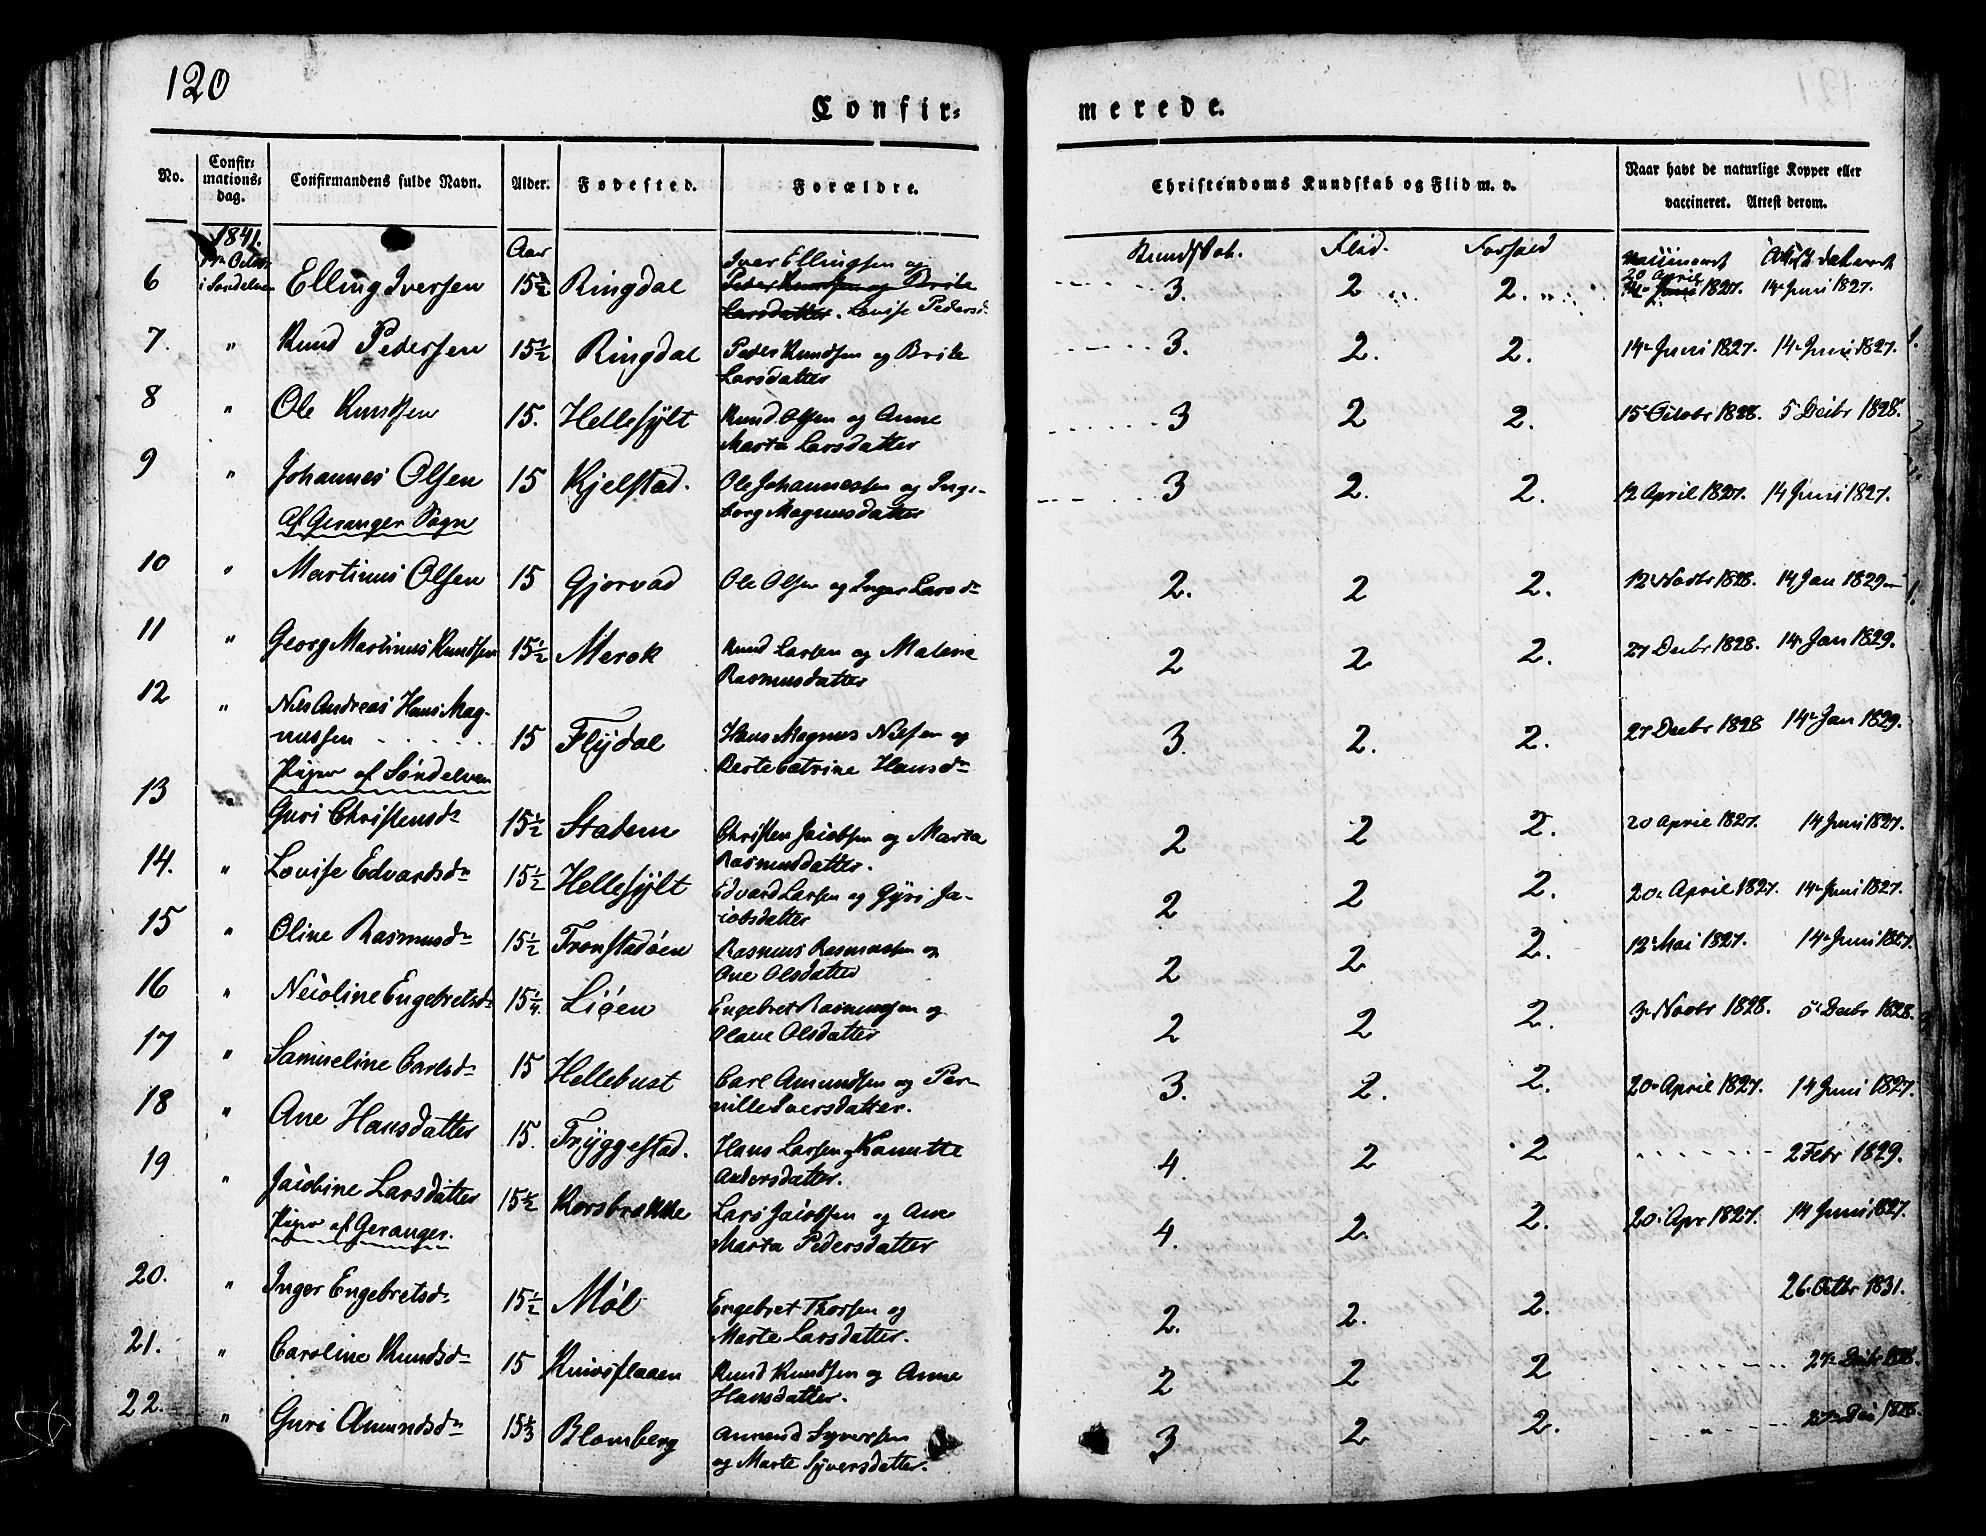 120
Confir=
merede.
No.
Confir=
mations=
dag.
Confirmandens fulde Navn.
Alder.
Fødested.
Forældre.
Christendoms Kundskab og Flid m. v.
Naar havt de naturlige Kopper eller
vaccineret. Attest derom.
1841.
Aar
Kundskab. Flid. Forhold
6 Elling Iversen 15½ Ringdal Iver Ellingsen og
Peder Knudsen og Brite
Larsdatter. Lovise Pedersd.
3. 2 2. 20 April 1827. 14 Juni 1827.
7. " Knud Pedersen 15½ Ringdal Peder Knudsen og Brite
Larsdatter
3. 2. 2. 14 Juni 1827. 14 Juni 1827.
8 " Ole Knudsen 15. Hellesÿlt Knud Olsen og Anne
Marta Larsdatter
3 2 2. 15 Octobr 1828. 5 Decbr 1828.
9 " Johannes Olsen 15 Kjelstad. Ole Johannessen og Inge-
borg Magnusdatter
3 2. 2. 12 April 1827. 14 Juni 1827.
af Geranger Sogn
10 " Martinus Olsen 15 Gjørvad Ole Olsen og Inger Larsd
2. 2 2. 12 Novbr 1828. 14 Jan 1829
11 " Georg Martinus Knudsen 15½ Merok Knud Larsen og Malene
Rasmusdatter
2 2 2. 27 Decbr 1828. 14 Jan 1829.
12 " Nils Andreas Hans Mag-
nussen 15 Flÿdal Hans Magnus Nilsen og
Berte Catrine Hansd
3. 2. 2. 27 Decbr 1828 14 Jan 1829.
Piger af Søndelven
13 " Guri Christensd 15½ Stadem Christen Jacobsen og Marta
Rasmusdatter.
2 2 2. 20 April 1827. 14 Juni 1827.
14. " Lovise Edvardsd 15½ Hellesÿlt Edvard Larsen og Gÿri Ja-
cobsdatter
2 2 2. 20 April 1827. 14 Juni 1827.
15 " Oline Rasmusd 15½ Tronstadøen Rasmus Rasmussen og
Ane Olsdatter
2 2 2. 12 Mai 1827. 14 Juni 1827.
16 " Nicoline Engebretsd 15¼. Liøen Engebret Rasmussen og
Olane Olsdatter
2 2 2. 3 Novbr 1828. 5 Decbr 1828.
17 " Samueline Carlsd 15 Hellebust Carl Amundsen og Per-
nille Iversdatter.
3. 2. 2. 20 April 1827. 14 Juni 1827.
18 " Ane Hansdatter 15. Trÿggestad. Hans Larsen og Kanutte
Andersdatter.
4. 2 2 2 Febr 1829.
19 " Jacobine Larsdatter 15½ Korsbrekke Lars Jacobsen og Ane
Marta Pedersdatter
4. 2. 2. 20 Apr 1827. 14 Juni 1827.
Piger af Geranger.
20. " Inger Engebretsd 15½ Møl Engebret Thorsen og
Marte Larsdatter.
2. 2. 2. 26 Octbr 1831.
21. " Caroline Knudsd 15 Knivsflaaen Knud Knudsen og Anne
Hansdatter.
2 2 2 27 Decbr 1828.
22. " Guri Amundsd 15⅓ Blomberg Amund Syversen
og Marte Sÿversdatter.
3 2 2. 27 Dec 1828.